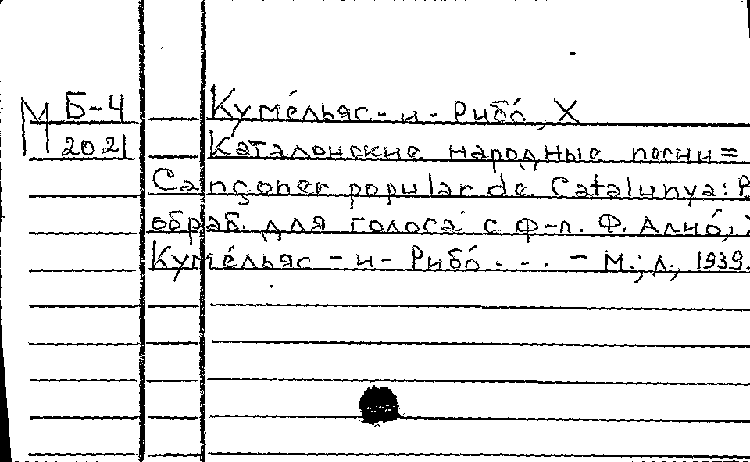 М Б-4 Кумельяс-и-Рибо́, Х
2021 Каталонские народные песни =
Cançoner popular de Catalunya: В
обраб. для голоса с ф-п. Ф. Ално́,
Куме́льяс-и-Рибо́... - М.; Л., 1939.